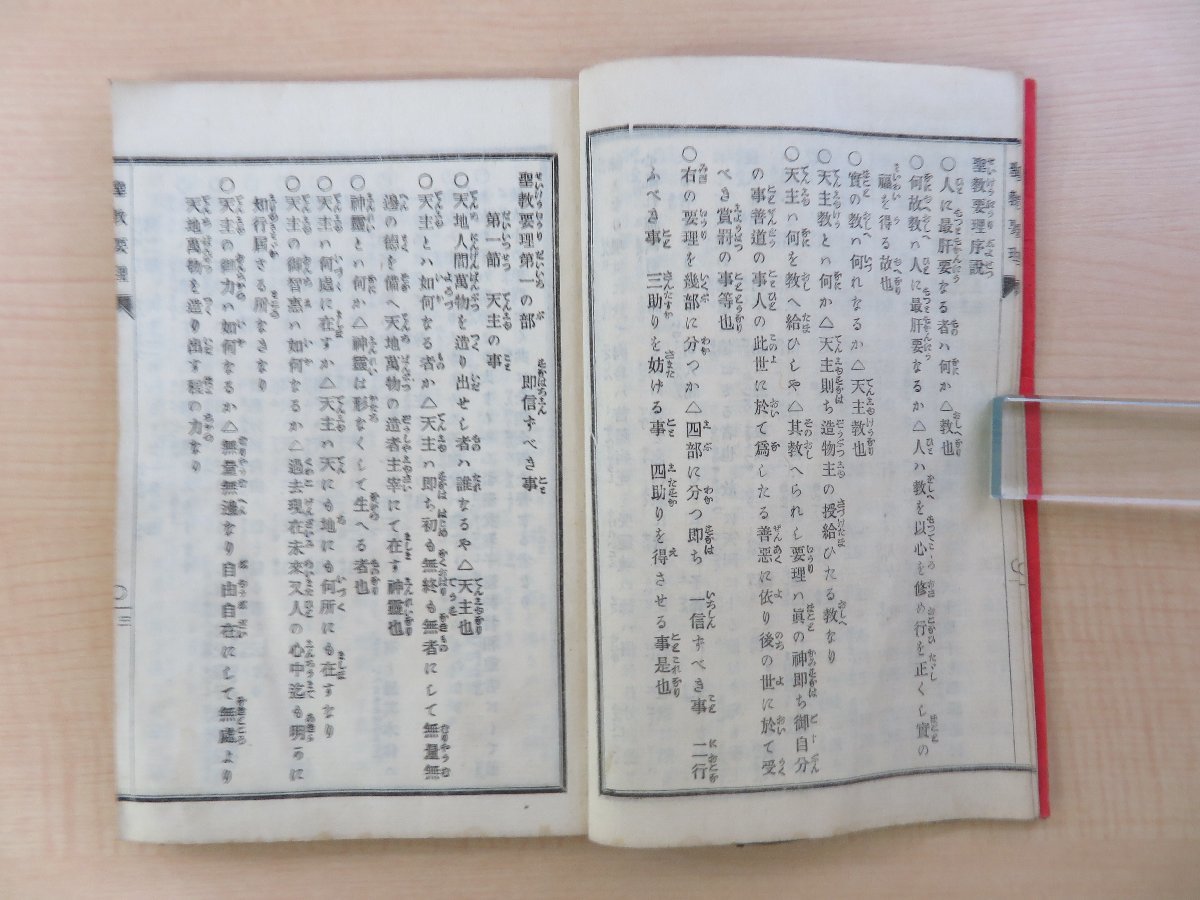 聖教要理序説
〇人に最肝要なる者ハ何か△教也
〇何故教ハ人に最肝要なるか△人ハ教を以心を修め行を正くし實の
福を得る故也
〇實の教ハ何れなるか△天主教也
〇天主教とハ何か△天主則ち造物主の授給ひたる教なり
〇天主ハ何を教へ給ひしや△其教へられし要理ハ眞の神即ち御自分
の事善道の事人の此世に於て爲したる善惡に依り後の世に於て受
べき賞罰の事等也
〇右の要理を幾部に分つか△四部に分つ即ち 一信すべき事 二行
ふべき事 三助りを妨ける事 四助りを得させる事是也
聖教要理
聖教要理第一の部 即信すべき事
第一節 天主の事
〇天地人間萬物を造り出せし者ハ誰なるや△天主也
〇天主とハ如何なる者か△天主ハ即ち初も無終も無者にして無量無
邉の徳を備へ天地萬物の造者主宰にて在す神靈也
〇神靈とハ何か△神靈は形なくして生へる者也
〇天主ハ何處に在すか△天主ハ天にも地にも何所にも在すなり
〇天主の御智惠ハ如何なるか△過去現在未來又人の心中迄も明らに
知行屆さる所なきなり
〇天主の御力ハ如何なるか△無量無邉なり自由自在にして無處より
天地萬物を造り出す程の力なり
聖教要理